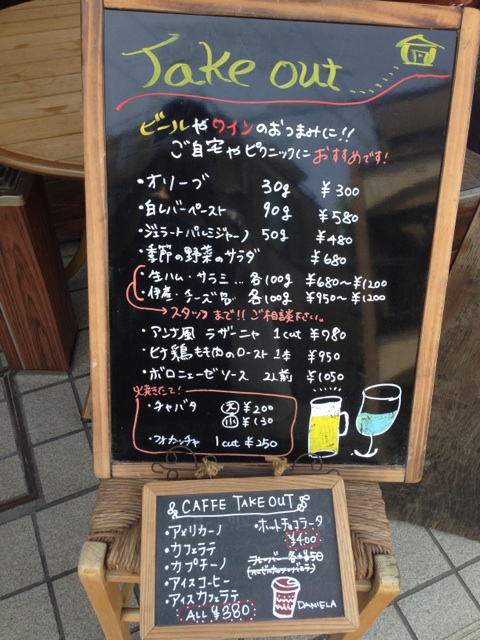 Take out
ビールやワインのおつまみに!!
ご自宅やピクニックにおすすめです!
・オリーブ 30g ¥300
・白レバーペースト 90g ¥580
・ジェラートパルミジャーノ 50g ¥480
・季節の野菜のサラダ ¥680
・生ハム・サラミ… 各100g ¥680〜¥1200
・伊産・チーズ 各100g ¥950〜¥1200
→スタッフまで!! ご相談下さい。
・アンナ風 ラザーニャ 1cut ¥780
・ヒナ鶏もも肉のロースト 1本 ¥950
・ボロニェーゼソース 2人前 ¥1050
焼きたて!
・チャバタ 大 ¥200
小 ¥130
・フォカッチャ 1cut ¥250
CAFFE TAKE OUT
・アメリカーノ
・カフェラテ
・カプチーノ
・アイスコーヒー
・アイスカフェラテ
ALL ¥380
・ホットチョコラータ
¥400
フレーバー 各+¥50
DANIELA